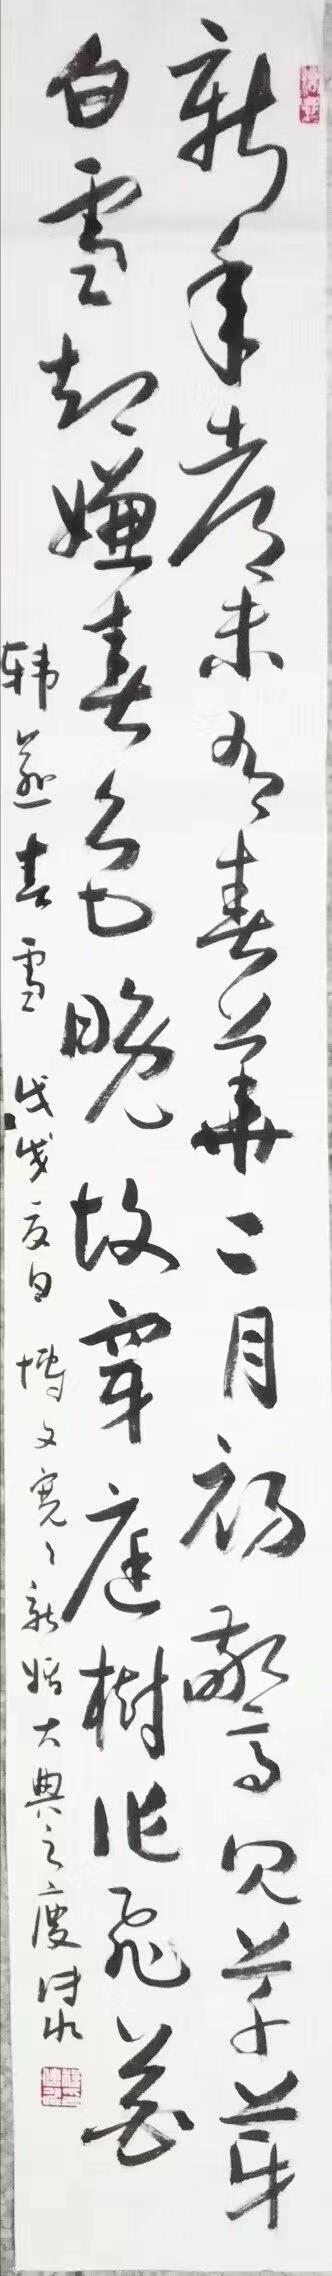 新年都未有春華二月初驚見草芽
白雪却嫌春色晚故穿庭樹作飛花
韩愈春雪 戊戌夏日 博文寬寬新婚大典之慶